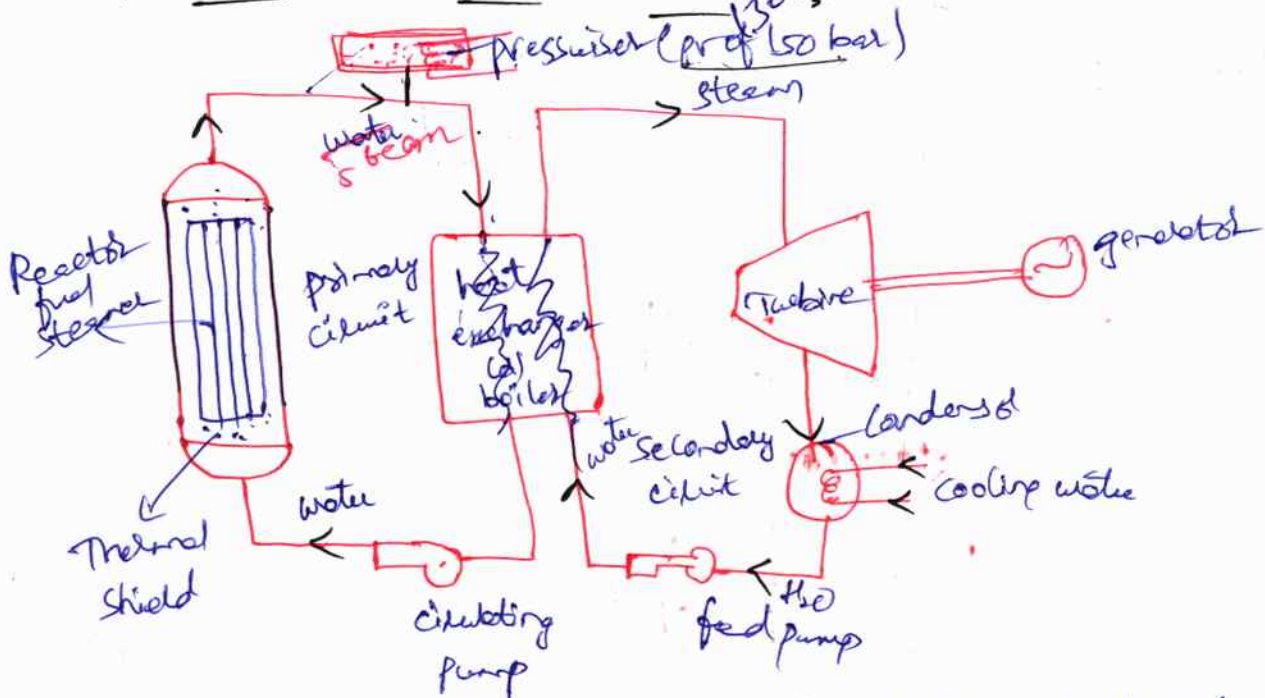 pressuiser (prof 150 bar)
steam
water
steam
Reactor
fuel
primary
circuit
heat
exchanger
(or)
boiler
Turbine
generator
Condensor
water
secondary
circuit
cooling water
water
Thermal
shield
circulating
pump
H2O
feed pump